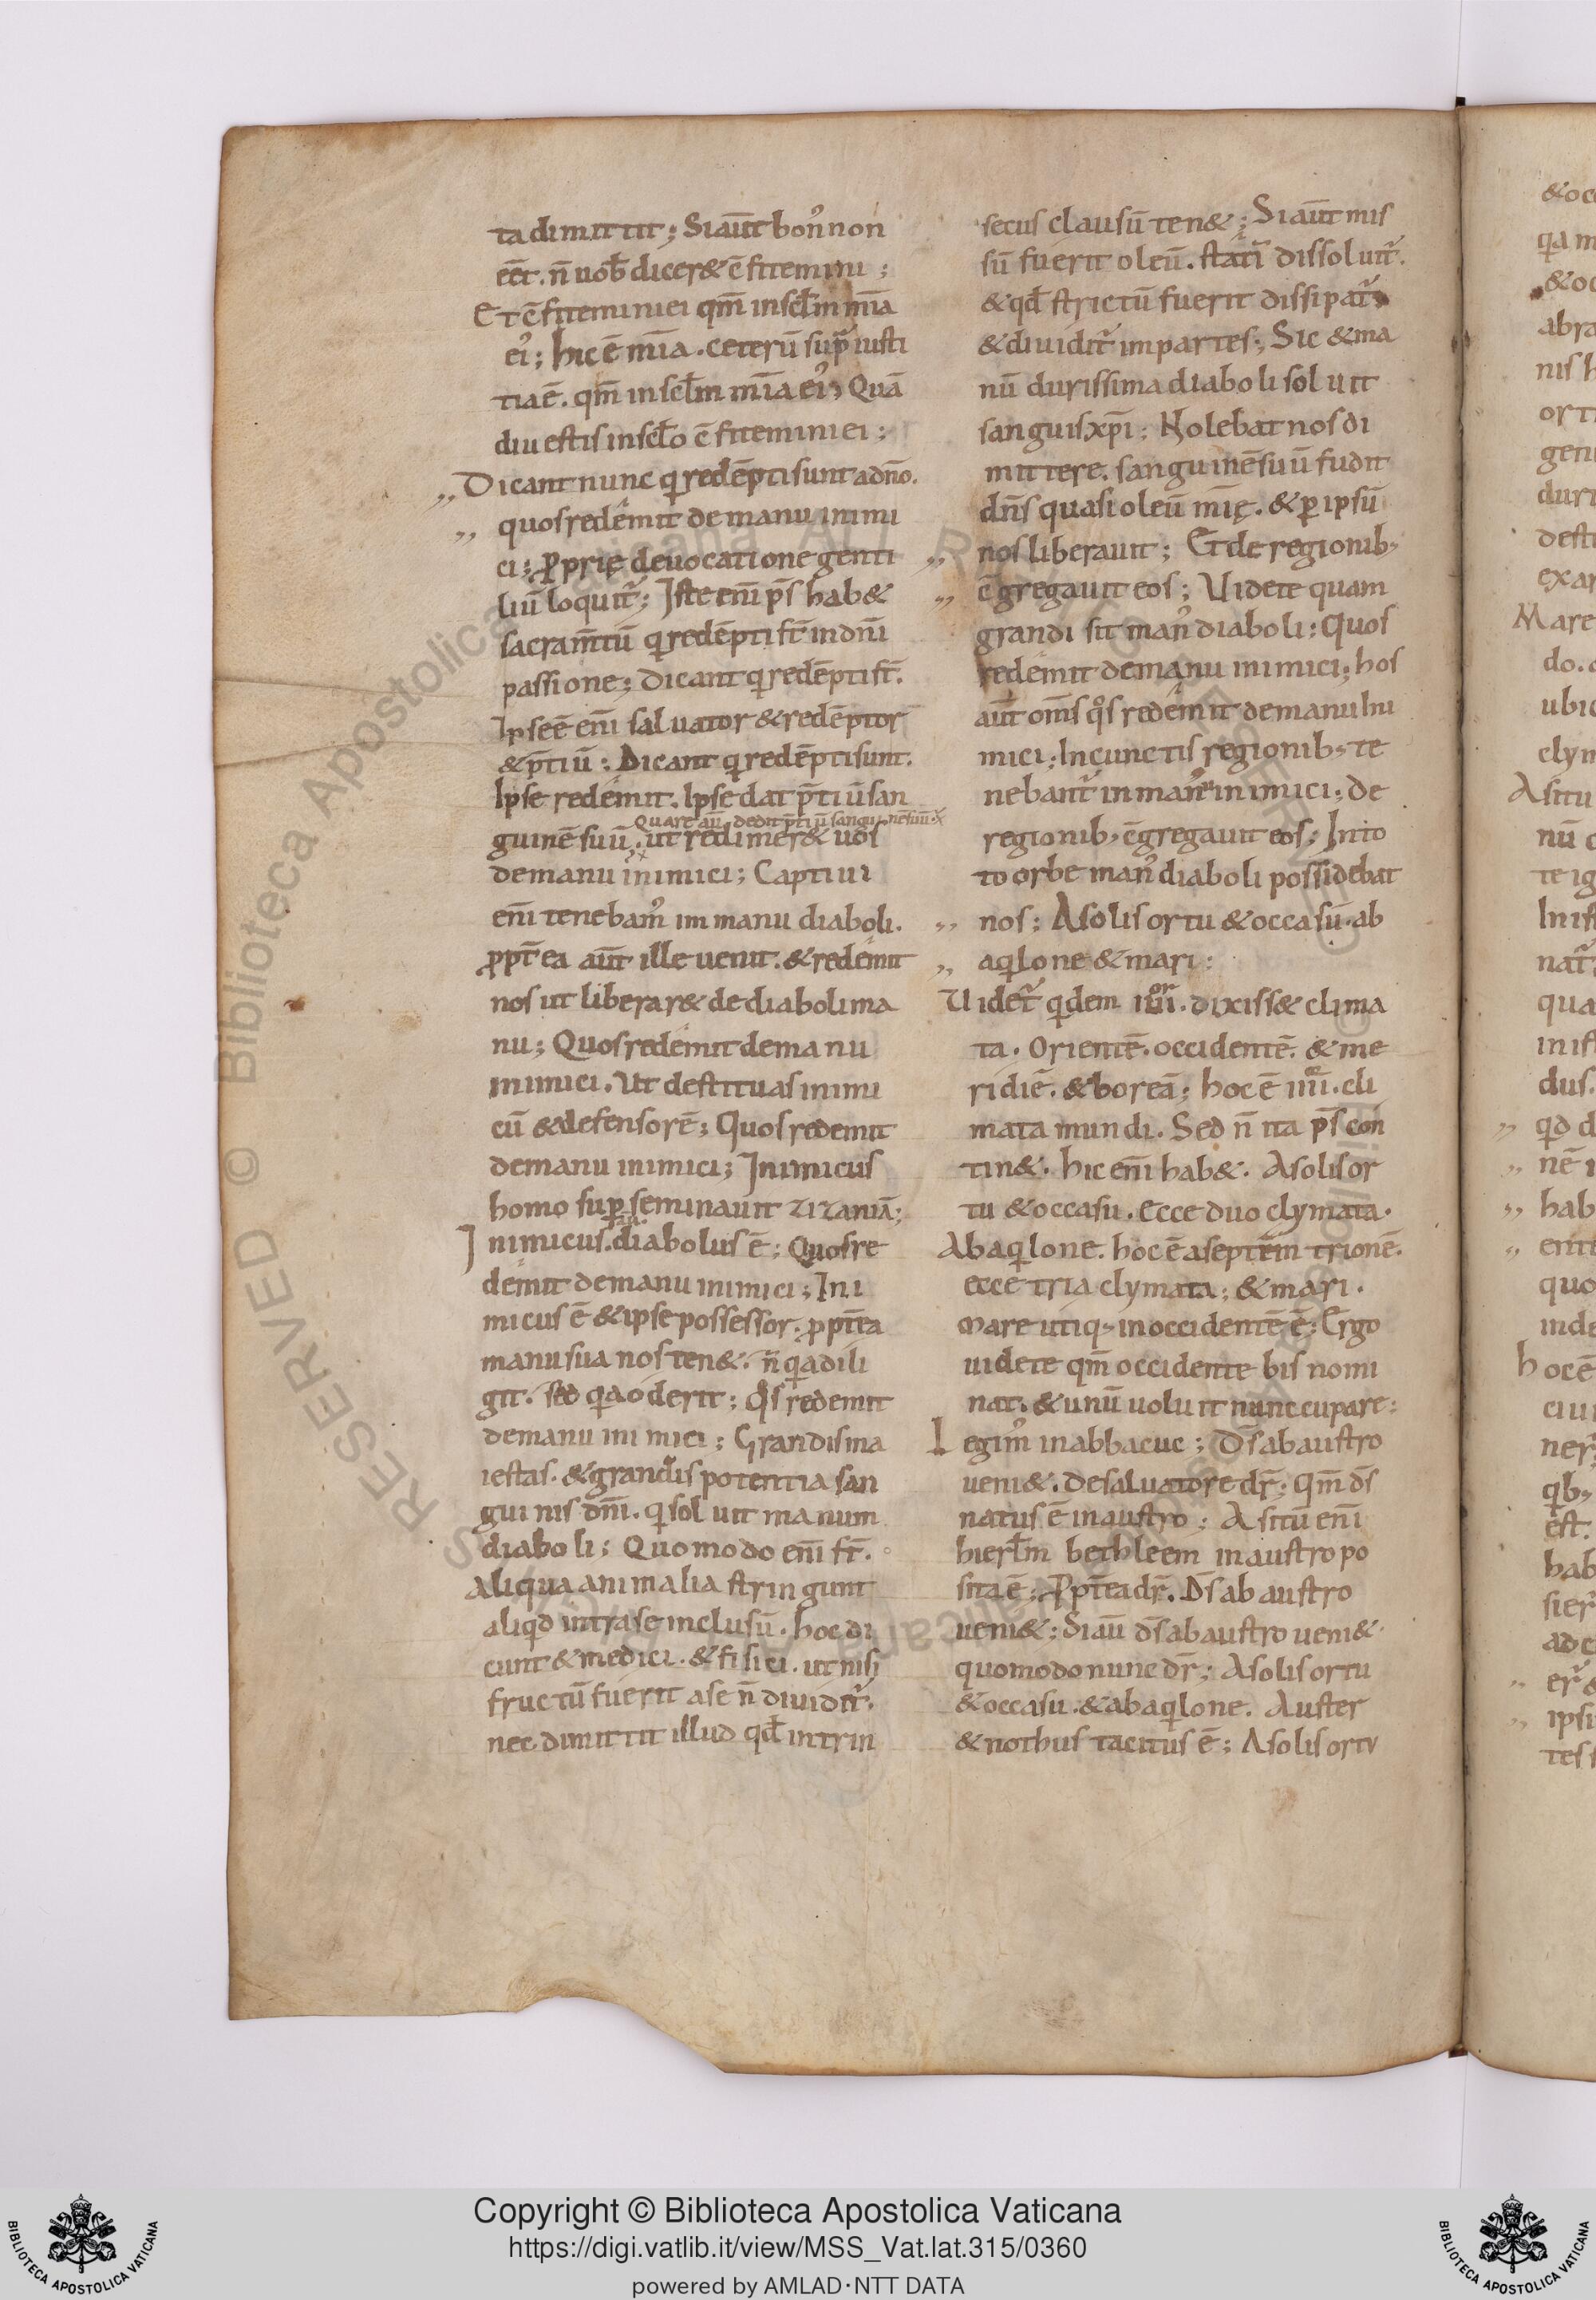 ta dimittit; Siaūt bon᾽ non
eēt. n̄ uob̄ dicer& c̄fitemini;
Et c̄fiteminiei qm̄ insecl̄m mīa
ei᾽; hic ē mīa. ceterū sup̄ iusti
tia ē. qm̄ insecl̄m mīa ei᾽; Quā
diu estis insecl̄o c̄fiteminiei;
,, Dicant nunc qi redēpti sunt adn̄o.
,, quos redemit de manu inimi
ci; ꝓprię deuocatione genti
liū loquit᷑; Iste enī p̄s hab&
sacram̄tū qi redēpti st̄ indn̄i
passione; Dicant qi redēpti st̄.
Ipse ē enī saluator & redēptor
& p̄tiū: Dicant qi redēpti sunt.
Ipse redemit. Ipse dat p̄tiū san
Quare aū dedit p̄tiū sanguinēsuū
guinē suū. ut redimer& uos
demanu inimici; Captiui
enī tenebam᾽ im manu diaboli.
ꝓpt̄ea aūt ille uenit. & redemit
nos ut liberar& de diaboli ma
nu; Quos redemit demanu
inimici. Ut destituas inimi
cū & defensorē; Quos redemit
demanu inimici; Inimicus
homo suꝑseminauit zizaniā;
Inimicus. diabolus ē; Quos re
demit demanu inimici; Ini
micus ē & ipse possessor. ꝓpt̄ea
manu sua nos ten&. n̄ qia dili
git. sed qia oderit; Qos redemit
demanu inimici; Grandis ma
iestas. & grandis potentia san
guinis dn̄i. qi soluit manum
diaboli; Quomodo enī st̄.
Aliqua animalia stringunt
aliqid intra se inclusū. hoc di
cunt & medici. & fisici. ut nisi
fructū fuerit ase n̄ diuidit᷑.
nec dimittit illud qd̄ intrin
secus clausū ten&; Siaūt mis
sū fuerit oleū. statī dissoluit᷑.
& qd̄ strictū fuerit dissipat᷑
& diuidit᷑ impartes; Sic & ma
nū durissima diaboli soluit
sanguis xp̄i; Nolebat nos di
mittere. sanguinē suū fudit
dn̄s quasi oleū mīę. & ꝑ ipsū
,, nos liberauit; Et de regionib;
,, c̄gregauit eos; Uidete quam
grandi sit man᾽ diaboli; Quos
redemit demanu inimici; hos
aūt om̄s qos redemit demanu ini
mici; In cunctis regionib; te
nebant᷑ in manu inimici; de
regionib; c̄gregauit eos; In to
to orbe man᾽ diaboli possidebat
,, nos; A solis ortu & occasū. ab
,, aqilone & mari:
Uidet᷑ qidem iiiior. dixiss& clima
ta. Orientē. occidentē. & me
ridiē. & boreā; hoc ē iiii. cli
mata mundi. Sed n̄ ita p̄s con
tin&. hic enī hab&. A solis or
tu & occasu. Ecce duo clymata.
Ab aqilone. hoc ē aseptēm trionē.
ecce tria clymata; & mari.
Mare utiq; in occidentē ē; Ergo
uidete qm̄ occidente bis nomi
nat. & unū uoluit nunccupare;
Legim᾽ in abbacuc; D̄s ab austro
ueni&. de saluatore dr̄; Qm̄ d̄s
natus ē in austro; A situ enī
hierl̄m bethleem in austro po
sita ē; ꝓpt̄ea dr̄. D̄s ab austro
ueni&; Siaū d̄s ab austro ueni&.
quomodo nunc dr̄; A solis ortu
& occasu. & ab aqilone. Auster
& nothus tacitus ē; A solis ortu
Copyright © Biblioteca Apostolica Vaticana
https://digi.vatlib.it/view/MSS_Vat.lat.315/0360
powered by AMLAD·NTT DATA
BIBLIOTECA APOSTOLICA VATICANA
BIBLIOTECA APOSTOLICA VATICANA